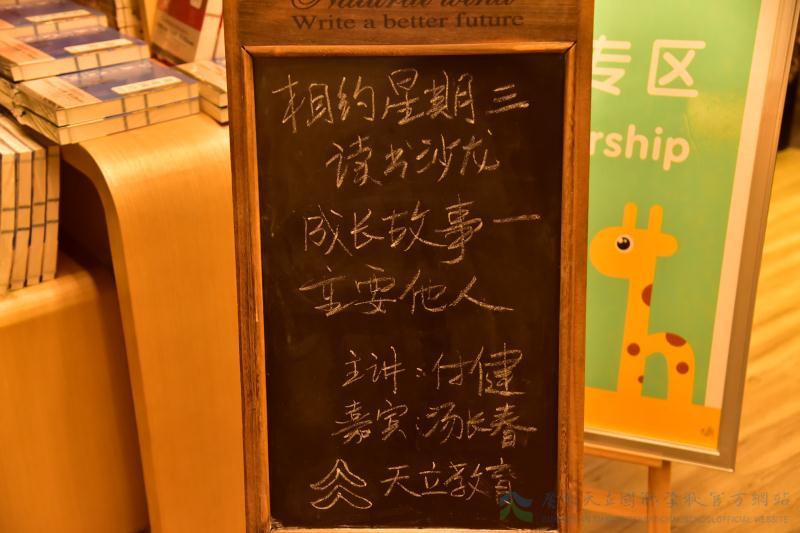 Natural world
Write a better future
相约星期三
读书沙龙
成长故事一
主要他人
主讲:付健
嘉宾:汤长春
天立教育
专区
rship
天立国际学校官方網站